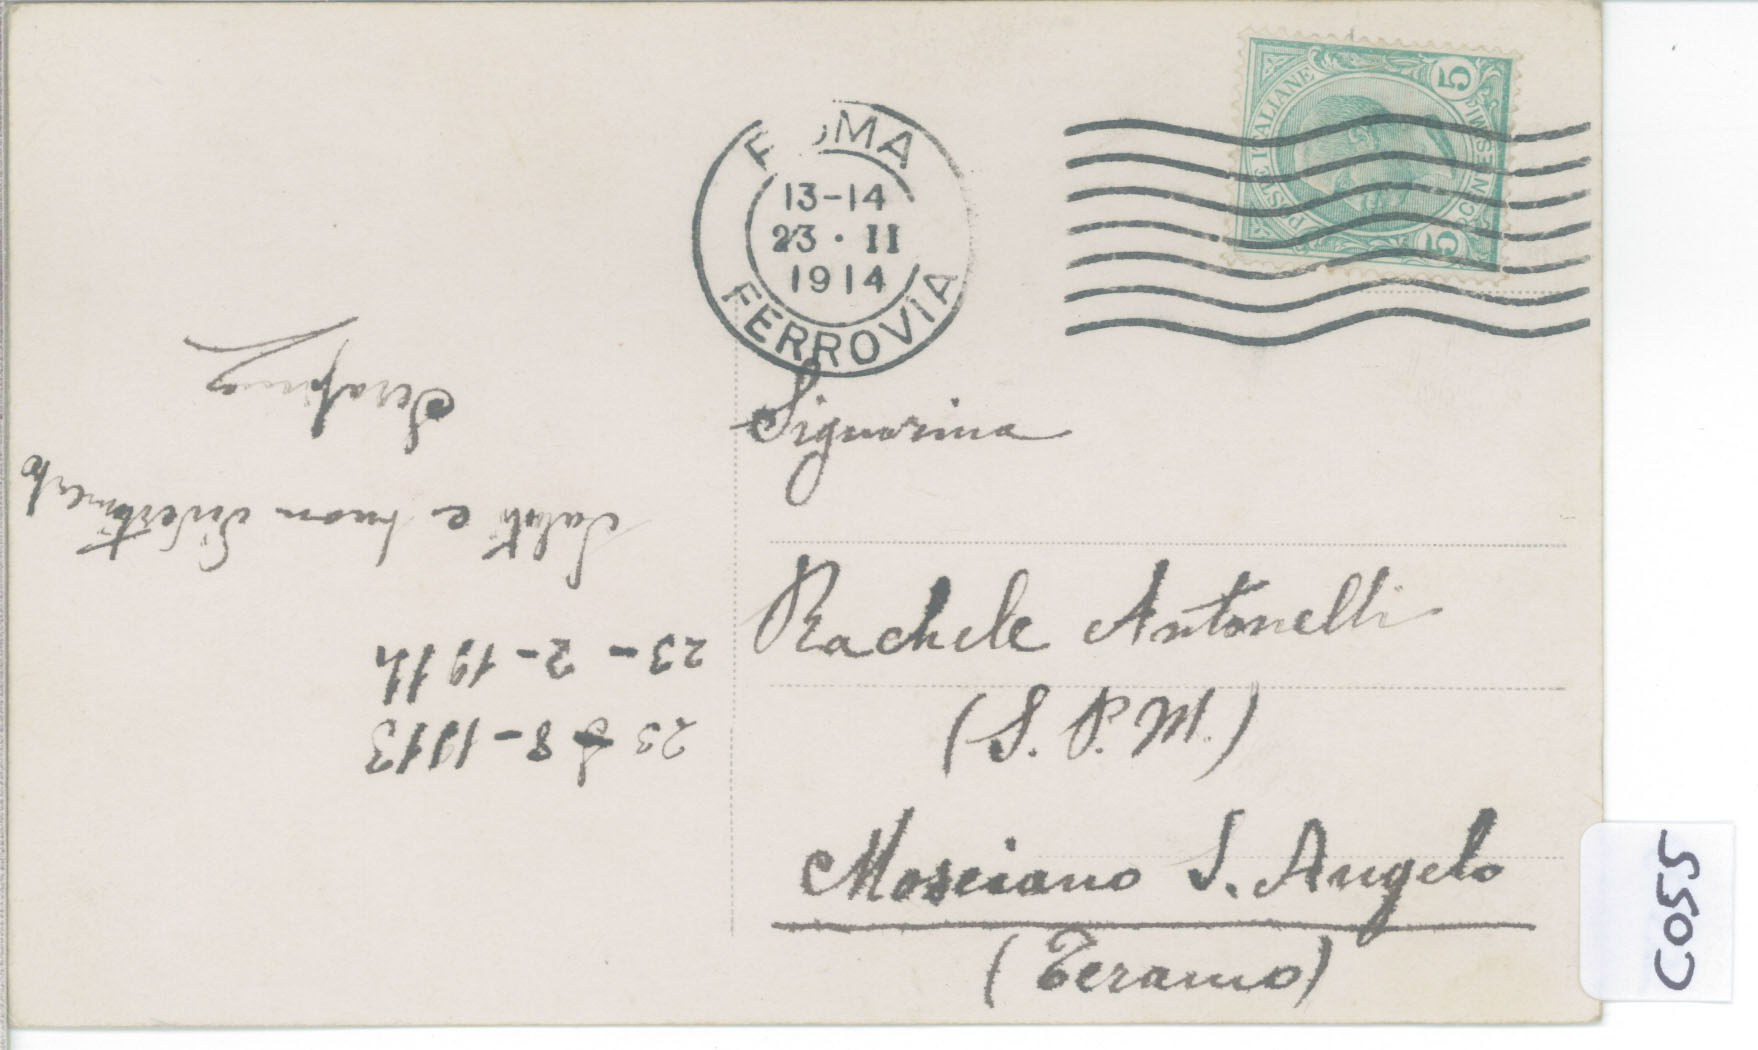 ROMA
13-14
23·II
1914
FERROVIA
POSTE ITALIANE
5
5
Signorina
Rachele Antonelli
(S. P. M.)
Mosciano S. Angelo
(Teramo)
23-8-1913
23-2-1914
Saluti e buon divertimento
Serafina
C055